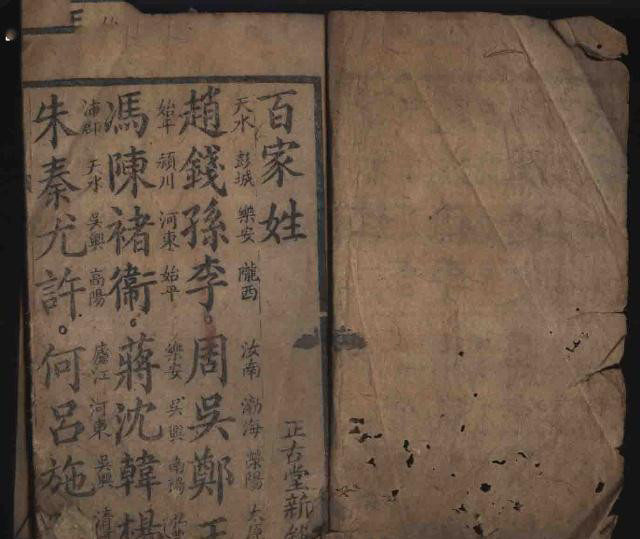 百家姓 正古堂新
天水 彭城 樂安 隴西 汝南 渤海 滎陽 太原
趙錢孫李。周吳鄭王
始平 頴川 河東 始平 樂安 吳興 南陽
馮陳褚衞。蔣沈韓楊
沛郡 天水 吳興 高陽 廬江 河東 吳興 清
朱秦尤許。何呂施